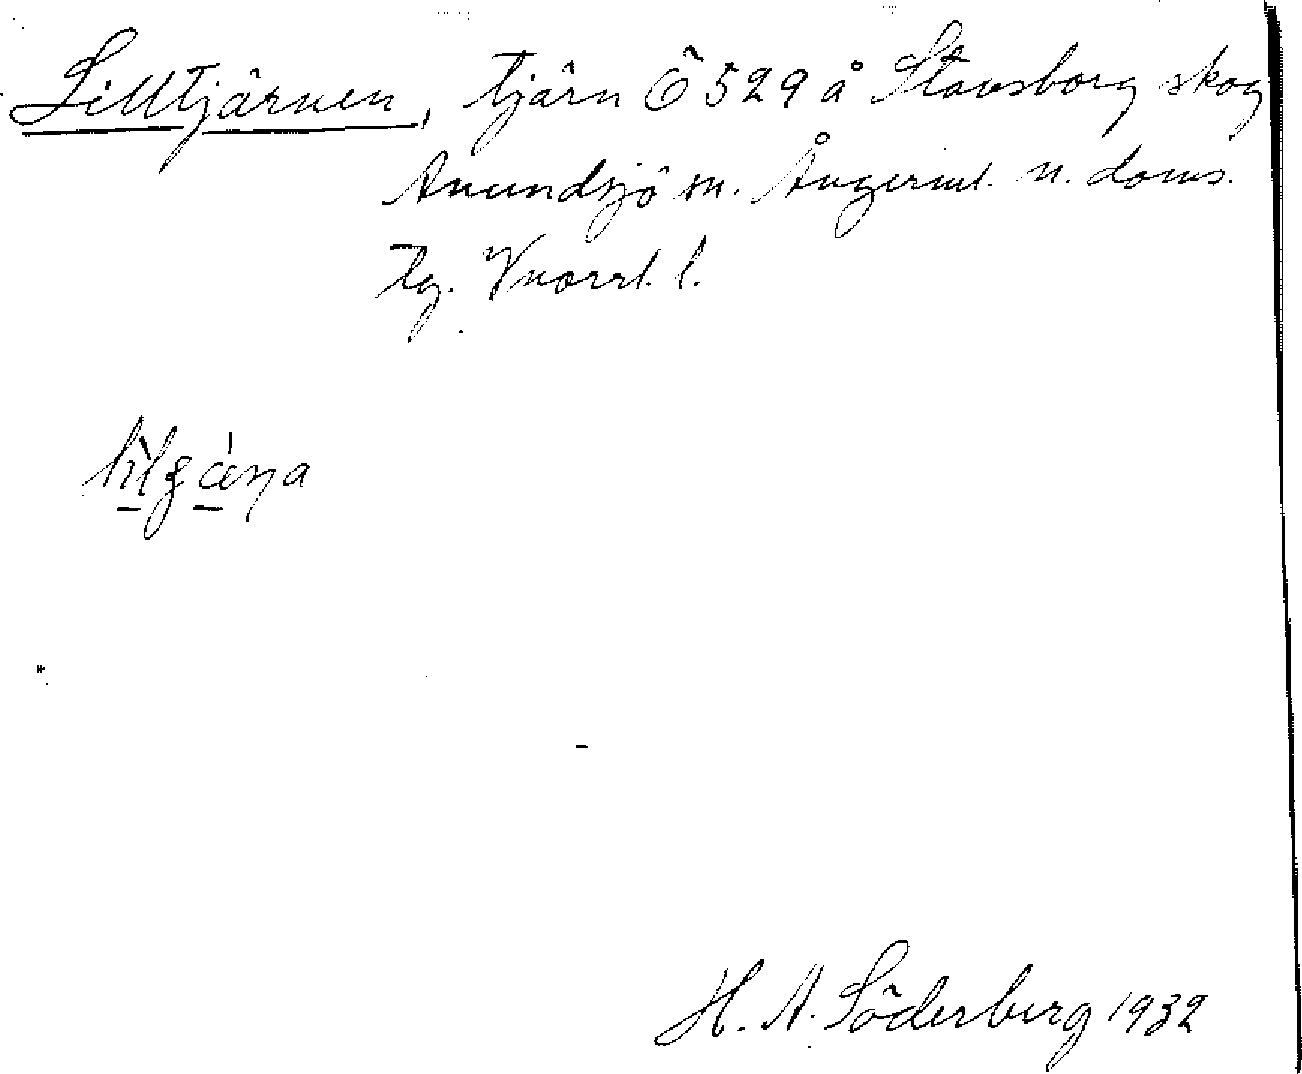 Lilltjärnen, tjärn Ö 529 å Stavsborg skog
Anundsjö sn. Ångerml. n. doms.
tg. Vnorrl. l.
H. A. Söderberg 1932